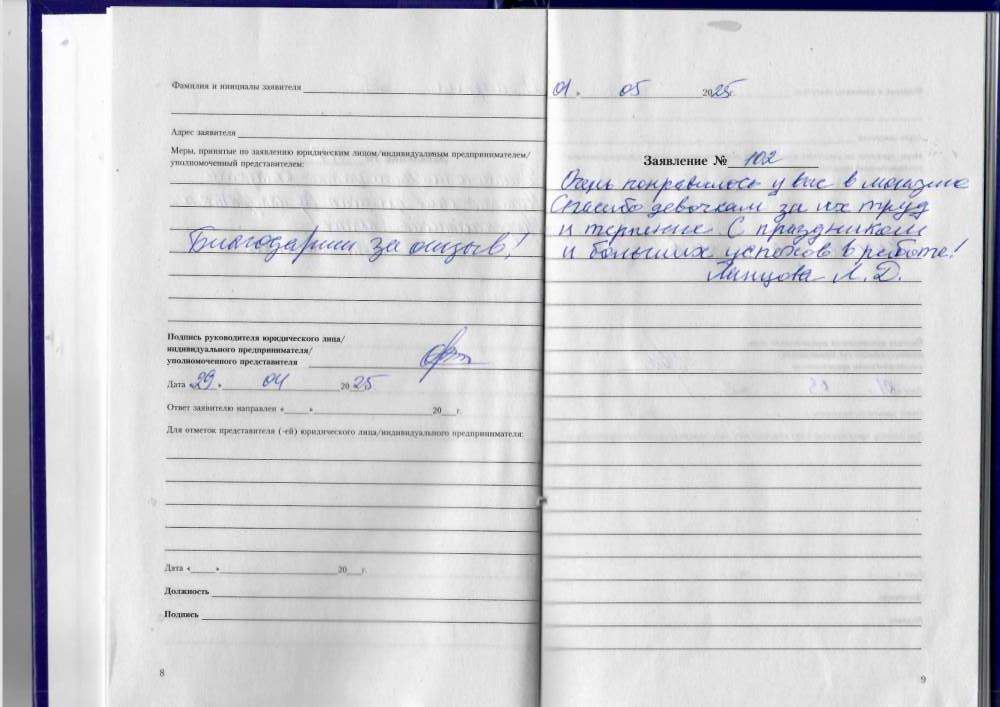 Фамилия и инициалы заявителя
Адрес заявителя
Меры, принятые по заявлению юридическим лицом/индивидуальным предпринимателем/
уполномоченный представителем:
Благодарим за отзыв!
Подпись руководителя юридического лица/
индивидуального предпринимателя/
уполномоченного представителя
Дата «29» 04 2025
Ответ заявителю направлен «____»____ 20__г.
Для отметок представителя (-ей) юридического лица/индивидуального предпринимателя:
Дата «____»____ 20__г.
Должность
Подпись
8
01» 05 2025г.
Заявление № 102
Очень понравилось у вас в магазине
Спасибо девочкам за их труд
и терпение С праздником
и больших успехов в работе!
Л.Д.
9